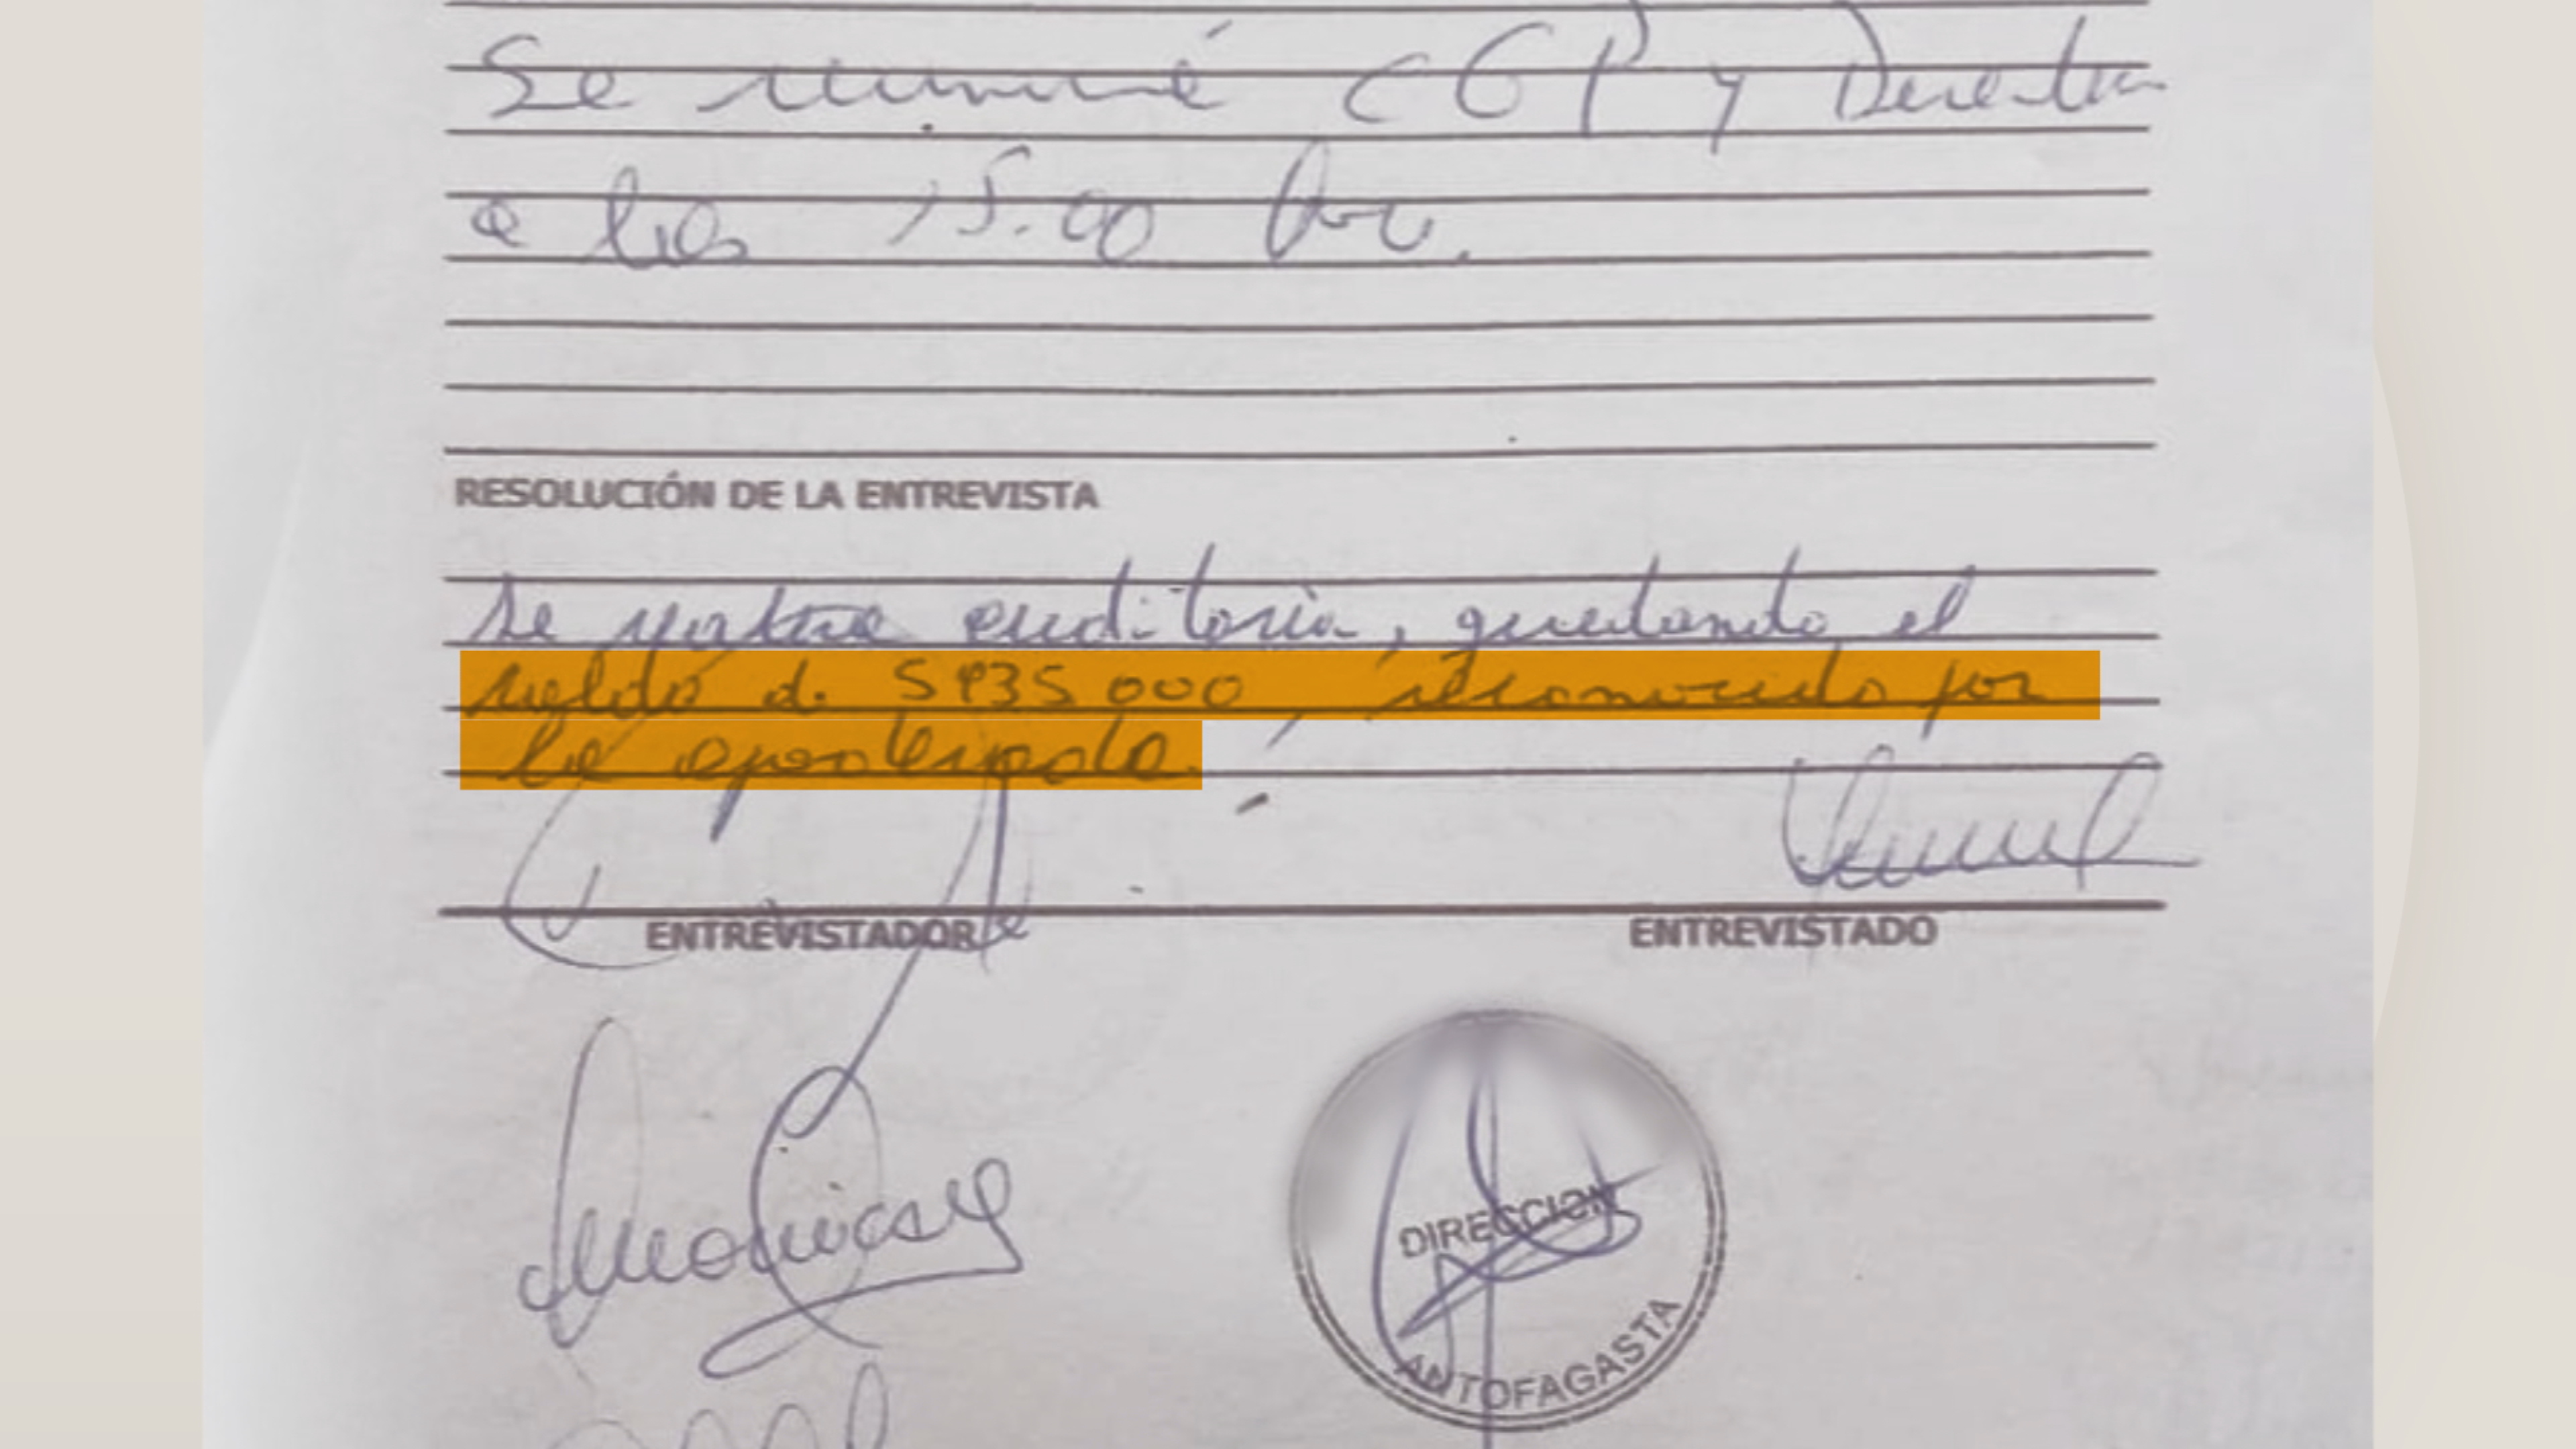 Se reunirá CGP y Directora
a las 15:00 hrs.
RESOLUCIÓN DE LA ENTREVISTA
Se auditoría, quedando el
saldo d. $935.000, reconocido por
la apoderada.
ENTREVISTADOR
ENTREVISTADO
DIRECCION
ANTOFAGASTA